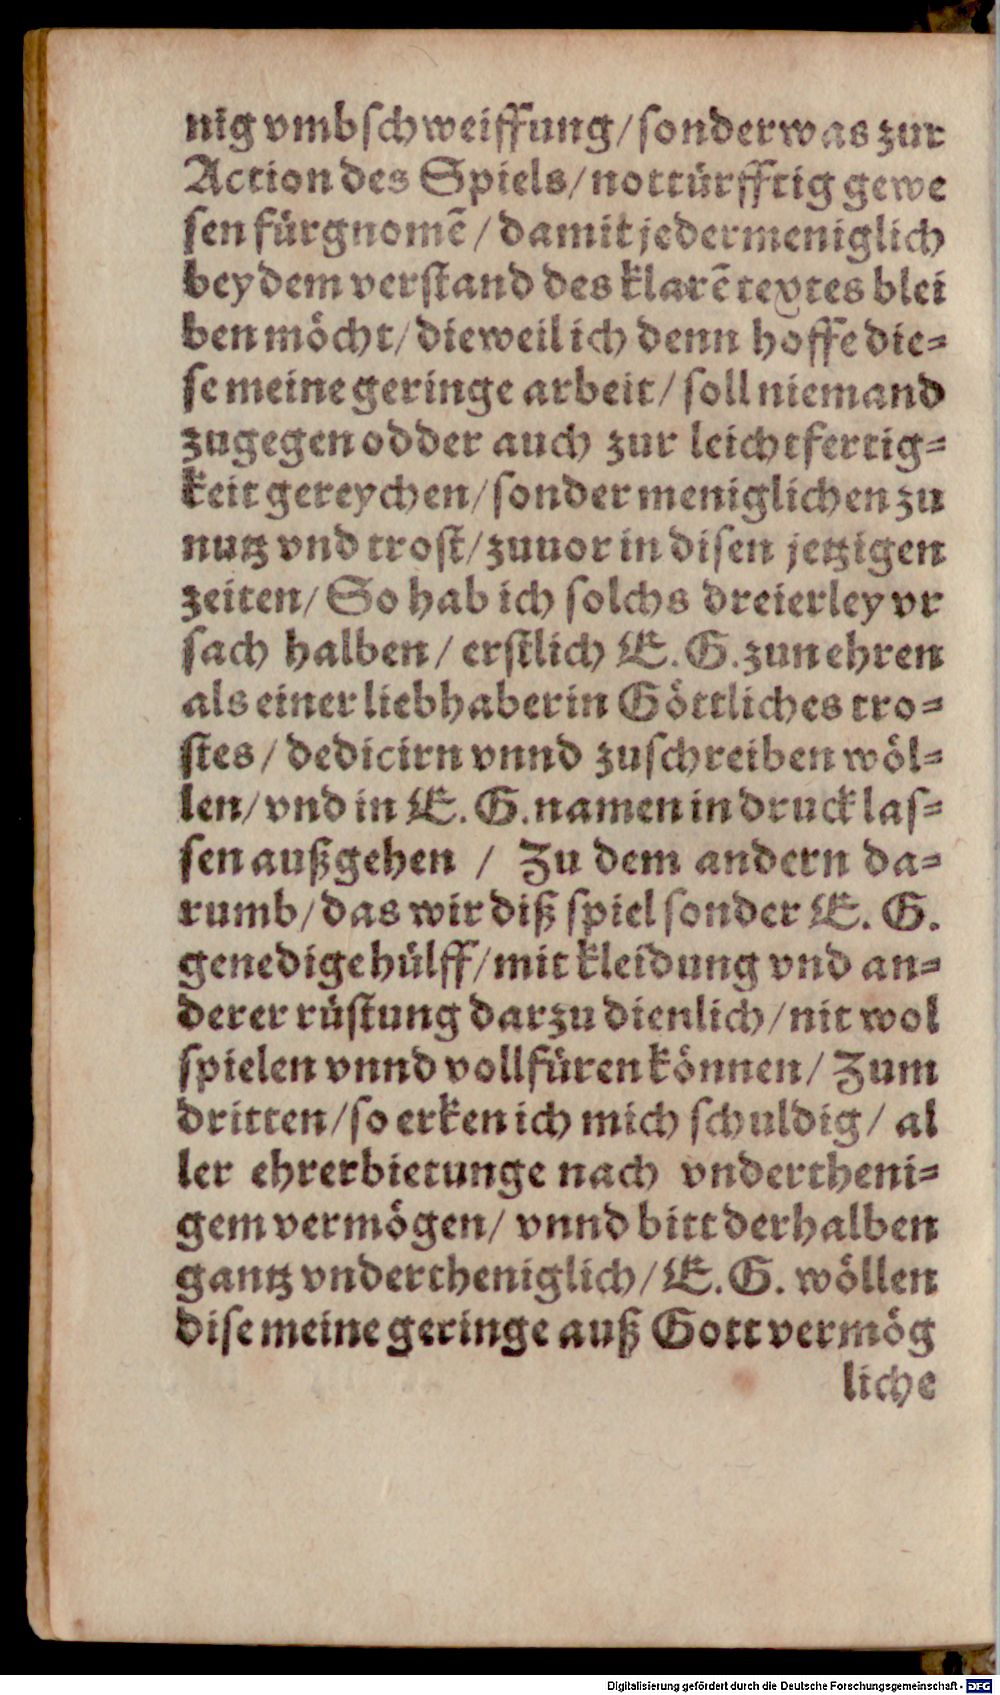 nig vmbschweiffung/ sonder was zur
Action des Spiels/ nottürfftig gewe
sen fürgnomẽ/ damit jedermeniglich
bey dem verstand des klarẽ textes blei
ben möcht/ dieweil ich denn hoffe die⸗
se meine geringe arbeit/ soll niemand
zugegen odder auch zur leichtfertig⸗
keit gereychen/ sonder meniglichen zu
nutz vnd trost/ zuuor in disen jetzigen
zeiten/ So hab ich solchs dreierley vr
sach halben/ erstlich E. G. zun ehren
als einer liebhaberin Göttliches tro⸗
stes/ dedicirn vnnd zuschreiben wöl⸗
len/ vnd in E. G. namen in druck las⸗
sen außgehen/ Zu dem andern da⸗
rumb/ das wir diß spiel sonder E. G.
genedige hülff/ mit kleidung vnd an⸗
derer rüstung darzu dienlich/ nit wol
spielen vnnd vollfüren können/ Zum
dritten/ so erken ich mich schuldig/ al
ler ehrerbietunge nach vndertheni⸗
gem vermögen/ vnnd bitt derhalben
gantz vndertheniglich/ E. G. wöllen
dise meine geringe auß Gott vermög
liche
Digitalisierung gefördert durch die Deutsche Forschungsgemeinschaft - DFG